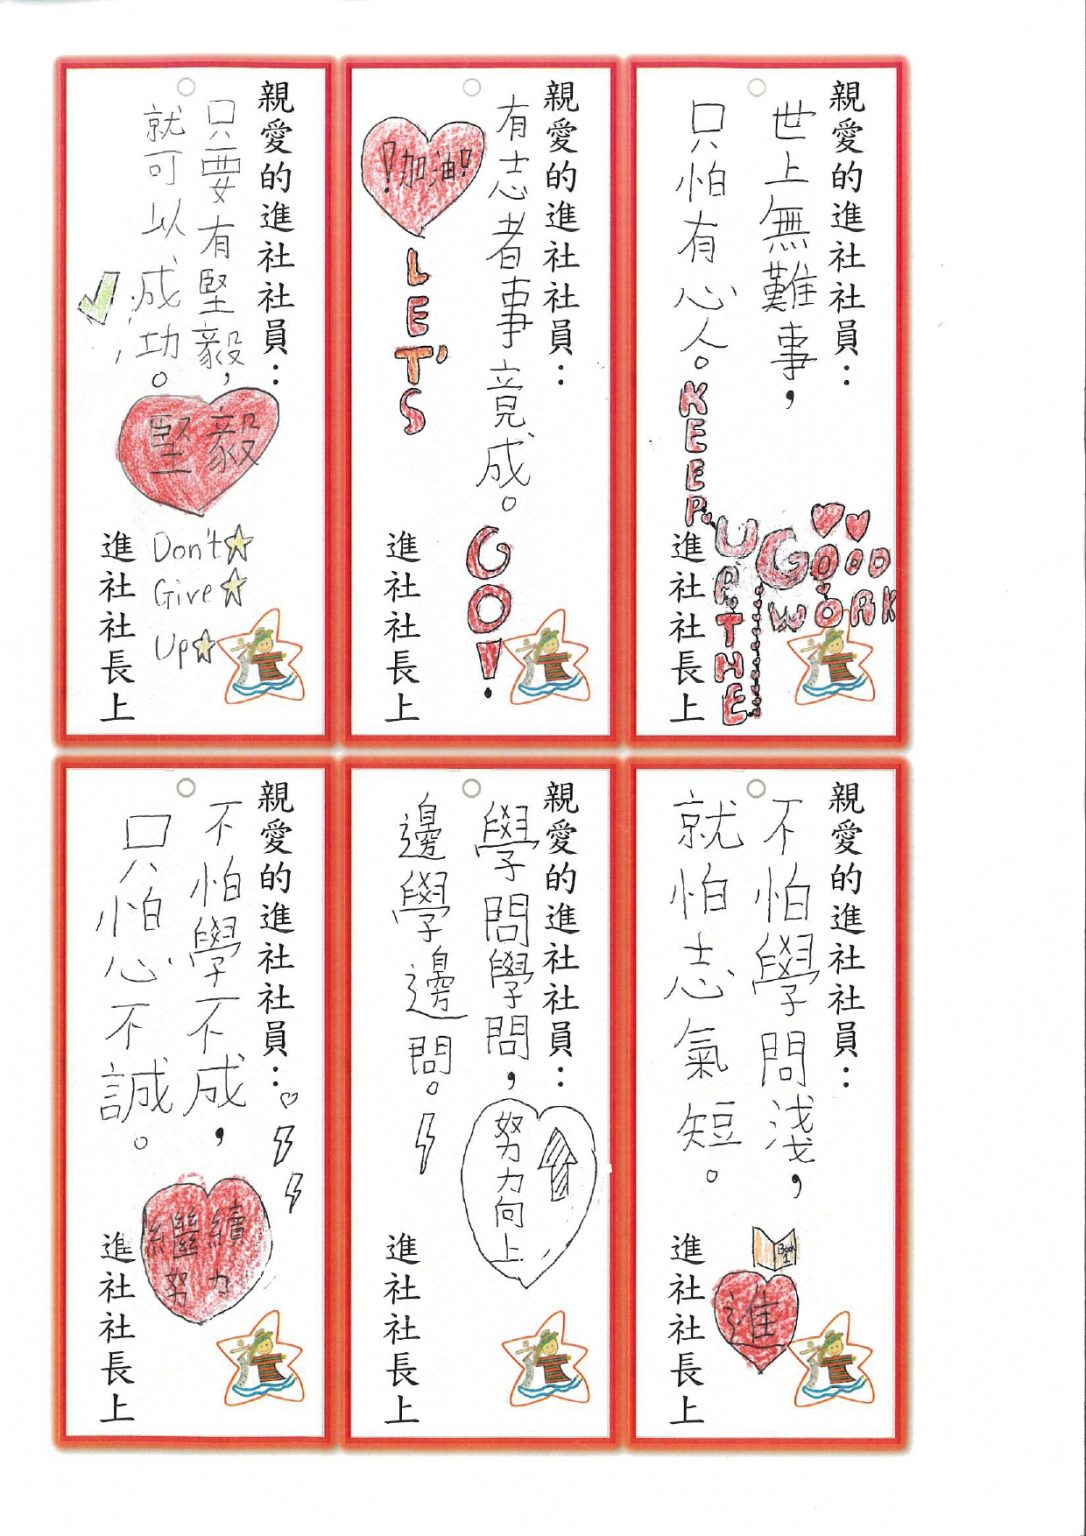 親愛的進社社員：
世上無難事，
只怕有心人。
KEEP
UP THE
GOOD
WORK
進社社長上
親愛的進社社員：
有志者事竟成。
！加油！
LET'S
GO！
進社社長上
親愛的進社社員：
只要有堅毅，
就可以成功。
堅毅
Don't
Give
Up
進社社長上
親愛的進社社員：
不怕學問淺，
就怕志氣短。
Book
1
進
進社社長上
親愛的進社社員：
學問學問，
邊學邊問。
努力向上
進社社長上
親愛的進社社員：
不怕學不成，
只怕心不誠。
繼續
努力
進社社長上